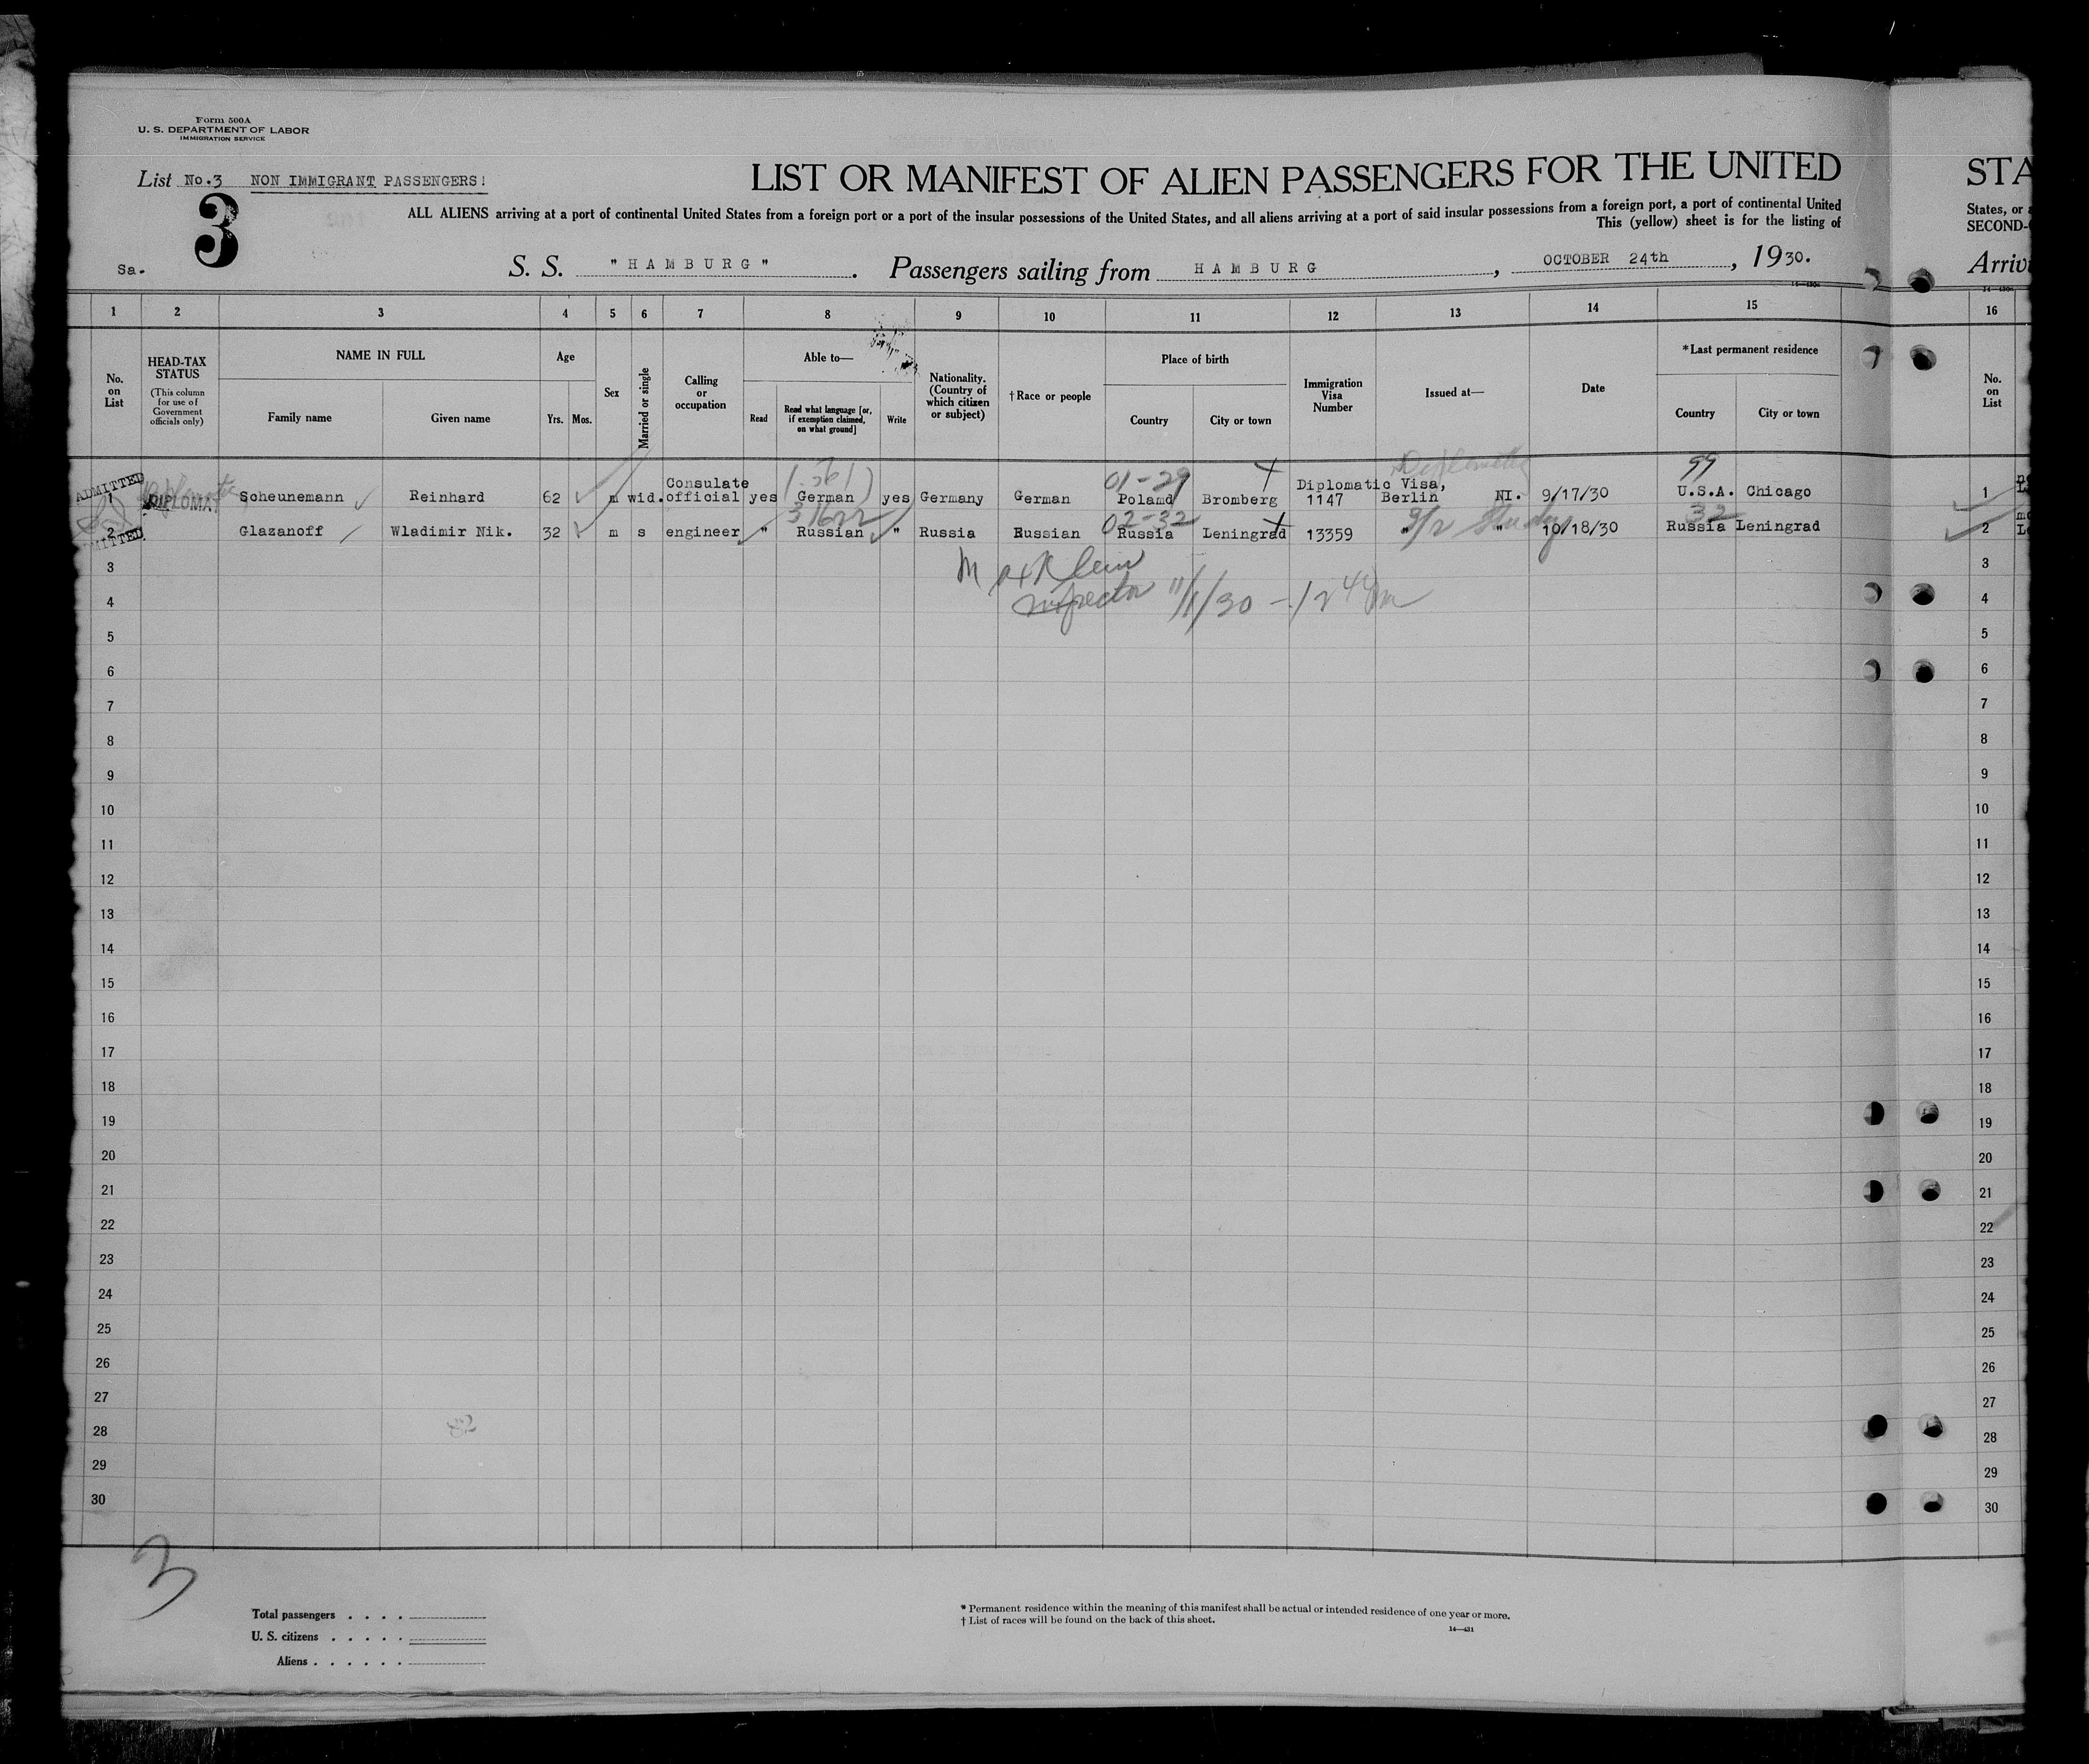 Form 500A
U. S. DEPARTMENT OF LABOR
IMMIGRATION SERVICE
List No.3 NON IMMIGRANT PASSENGERS!
3
LIST OR MANIFEST OF ALIEN PASSENGERS FOR THE UNITED
STA
ALL ALIENS arriving at a port of continental United States from a foreign port or a port of the insular possessions of the United States, and all aliens arriving at a port of said insular possessions from a foreign port, a port of continental United
States, or
This (yellow) sheet is for the listing of
SECOND-
Sa.
S. S. "HAMBURG". Passengers sailing from HAMBURG, OCTOBER 24th, 1930.
Arriv
1 2 3 4 5 6 7 8 9 10 11 12 13 14 15 16
No. on List
HEAD-TAX STATUS
(This column for use of Government officials only)
NAME IN FULL
Family name Given name
Age
Yrs. Mos.
Sex
Married or single
Calling or occupation
Able to—
Read Read what language [or, if exemption claimed, on what ground] Write
Nationality. (Country of which citizen or subject)
†Race or people
Place of birth
Country City or town
Immigration Visa Number
Issued at—
Date
*Last permanent residence
Country City or town
No. on List
ADMITTED
01-29 99
1 DIPLOMAT Scheunemann Reinhard 62 m wid. Consulate official yes German yes Germany German Poland Bromberg Diplomatic Visa, 1147 Berlin NI. 9/17/30 U.S.A. Chicago 1
31622 02-32 32
2 Glazanoff Wladimir Nik. 32 m s engineer " Russian " Russia Russian Russia Leningrad 13359 " " 10/18/30 Russia Leningrad 2
ADMITTED
3 3
Inspector 11/1/30
4 4
5 5
6 6
7 7
8 8
9 9
10 10
11 11
12 12
13 13
14 14
15 15
16 16
17 17
18 18
19 19
20 20
21 21
22 22
23 23
24 24
25 25
26 26
27 27
28 28
29 29
30 30
3
Total passengers . . . .
U. S. citizens . . . . .
Aliens . . . . . .
* Permanent residence within the meaning of this manifest shall be actual or intended residence of one year or more.
† List of races will be found on the back of this sheet.
14—431